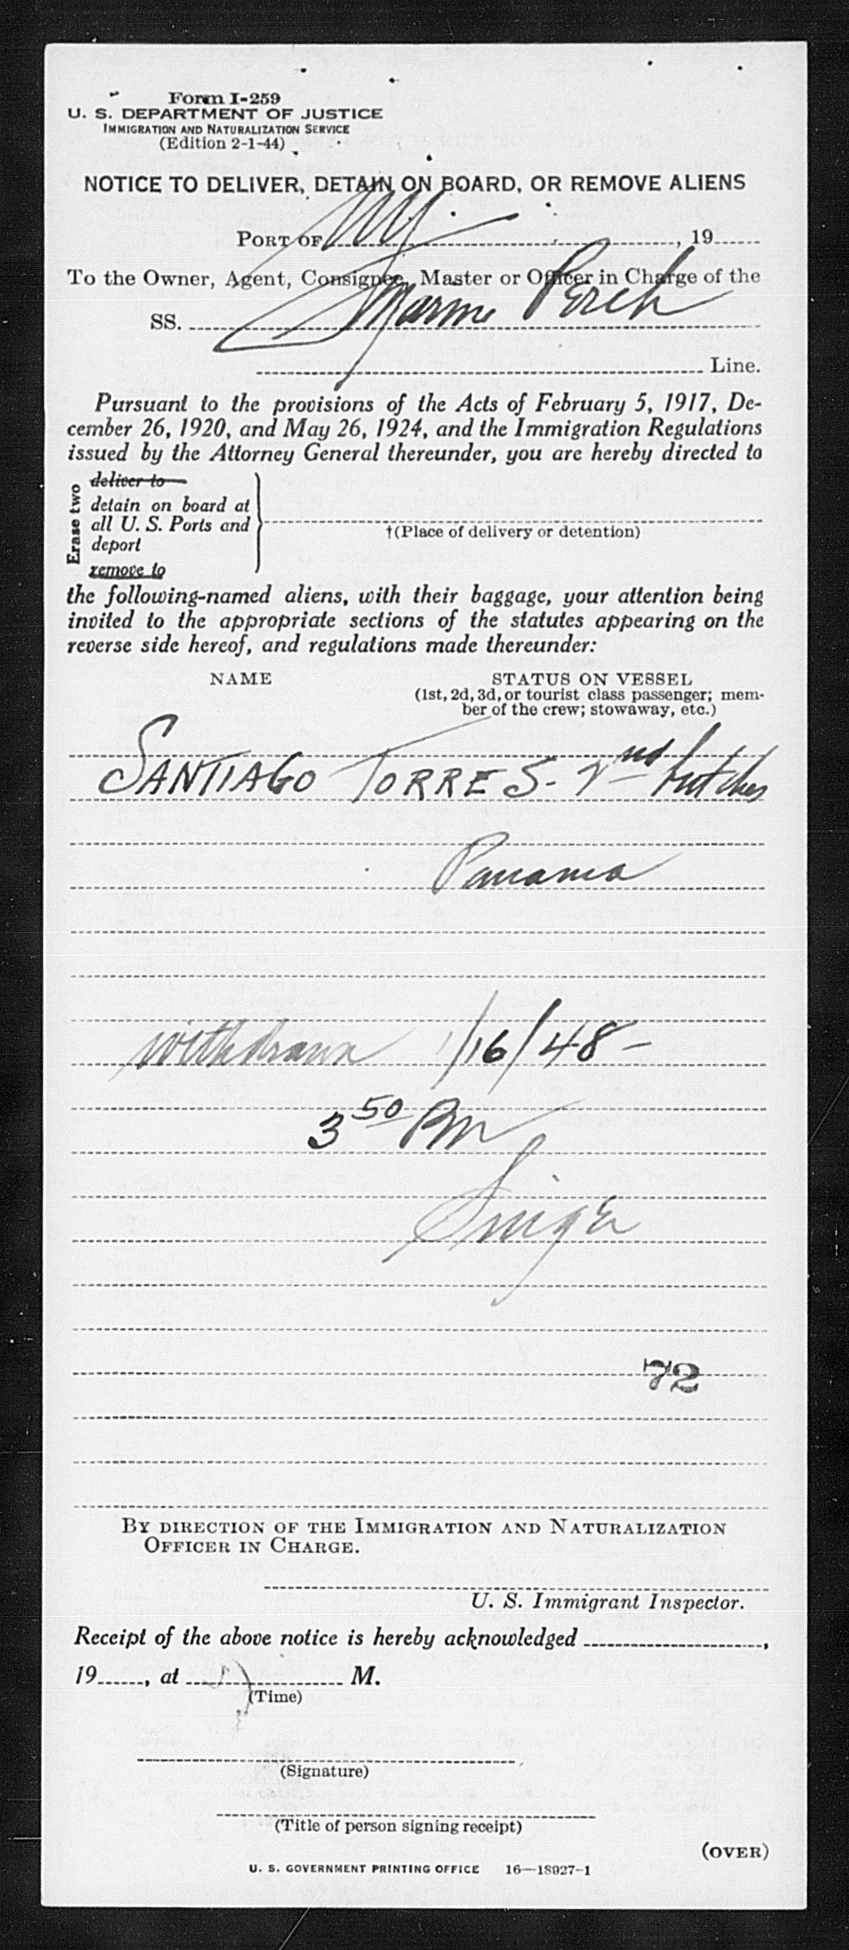 Form I-259
U. S. DEPARTMENT OF JUSTICE
IMMIGRATION AND NATURALIZATION SERVICE
(Edition 2-1-44)
NOTICE TO DELIVER, DETAIN ON BOARD, OR REMOVE ALIENS
PORT OF NY, 19
To the Owner, Agent, Consignee, Master or Officer in Charge of the
SS. Marine Perch
Line.
Pursuant to the provisions of the Acts of February 5, 1917, De-
cember 26, 1920, and May 26, 1924, and the Immigration Regulations
issued by the Attorney General thereunder, you are hereby directed to
Erase two
deliver to
detain on board at
all U. S. Ports and
deport
remove to
†(Place of delivery or detention)
the following-named aliens, with their baggage, your attention being
invited to the appropriate sections of the statutes appearing on the
reverse side hereof, and regulations made thereunder:
NAME STATUS ON VESSEL
(1st, 2d, 3d, or tourist class passenger; mem-
ber of the crew; stowaway, etc.)
SANTIAGO TORRES - 2nd butcher
Panama
withdrawn 1/16/48 -
3 50 PM
Singer
72
BY DIRECTION OF THE IMMIGRATION AND NATURALIZATION
OFFICER IN CHARGE.
U. S. Immigrant Inspector.
Receipt of the above notice is hereby acknowledged ,
19 , at M.
(Time)
(Signature)
(Title of person signing receipt)
(OVER)
U. S. GOVERNMENT PRINTING OFFICE 16—18927-1